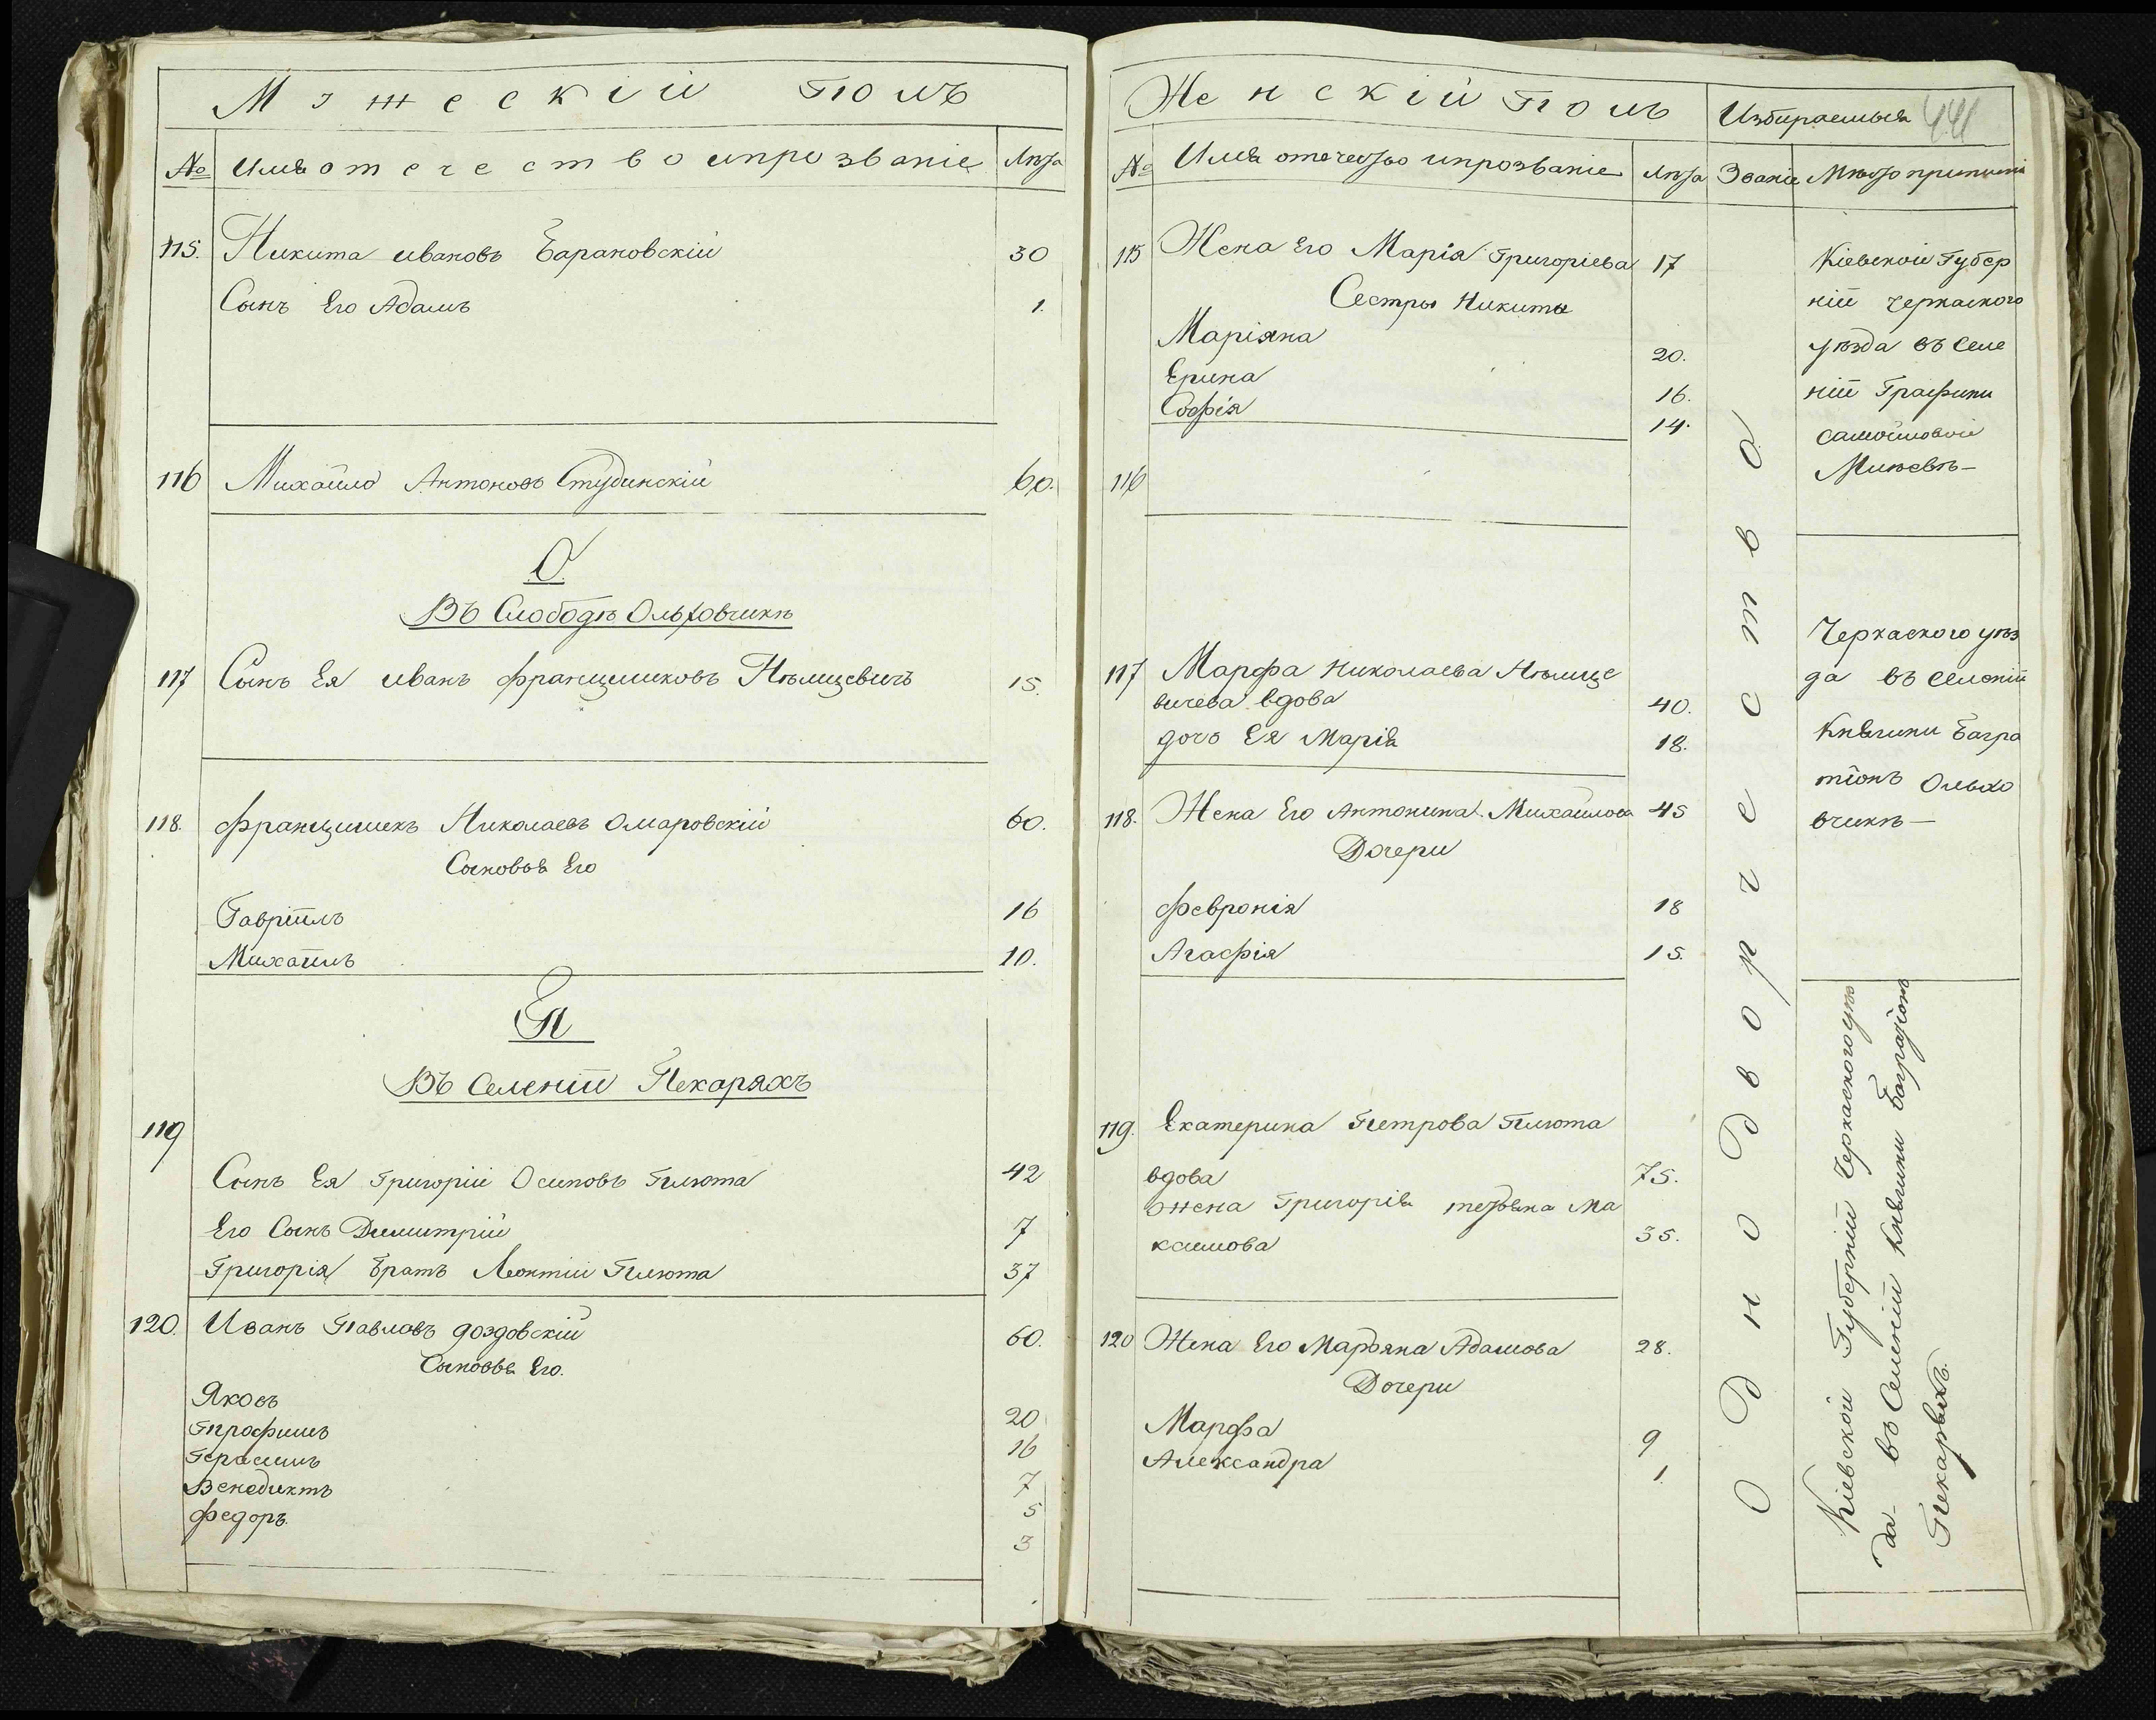 Мужескій Полъ
№ Имя отечество ипрозваніе Лѣта
115. Никита ивановъ Барановскій 30
Сынъ Его Адамъ 1.
116 Михайло Антоновъ Студинскій 60.
О
Въ Слободѣ Ольховчикѣ
117 Сынъ Ея иванъ францишковъ Нѣмцевичъ 15.
118. францишекъ Николаевъ Омаровскій 60.
Сыновья Его
Гавріилъ 16
Михаилъ 10.
П
Въ Селеніи Пекаряхъ
119
Сынъ Ея Григорій Осиповъ Плюта 42
Его Сынъ Димитрій 7
Григорія братъ Леонтій Плюта 37
120. Иванъ Павловъ доздовскій 60.
Сыновья Его.
Яковъ 20
Трофимъ 16
Герасимъ 7
Венедиктъ 5
федоръ. 3
Женскій Полъ
Избираемыя 441
№ Имя отечество ипрозваніе Лѣта Званіе Мѣсто приписки
115 Жена Его Марія Григоріева 17
Сестры Никиты
Маріяна 20.
Ерина 16.
Софія 14.
116
117 Марфа Николаева Нѣмце
вичева вдова 40.
дочь Ея Марія 18.
118. Жена Его Антонина Михайлова 45
Дочери
февронія 18
Агафія 15.
119. Екатерина Петрова Плюта
вдова 75.
жена Григорія тетяна Ма
ксимова 35.
120 Жена Его Марьяна Адамова 28.
Дочери
Марфа 9
Александра 1.
Однодворчества
Кіевской Губер
ніи черкаского
уѣзда въ Селе
ніи Графини
самойловой
Мліевѣ-
Черкаского уѣз
да въ селеніи
Княгини Багра
тіонъ Ольхо
вчикѣ-
Кіевской Губерніи Черкаского уѣз
да въ Селеніи Княгини Багратіонъ
Пекаряхъ.